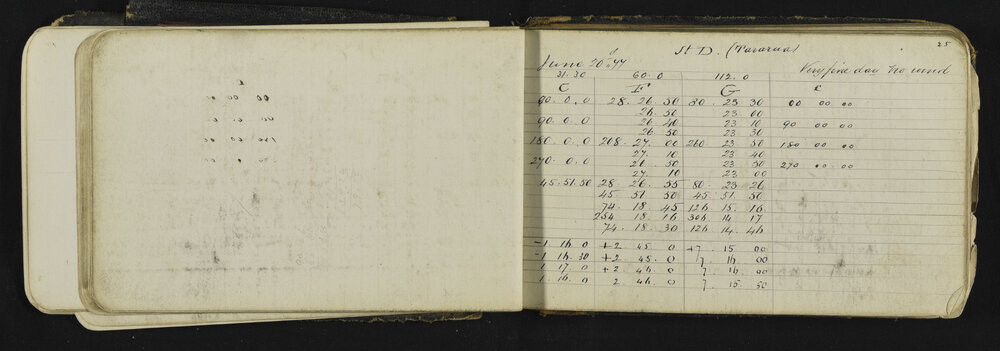 25
St D. (Tararua)
June 20th 77
Very fine day No wind
31.30 60.0 112.0
C F G c
90.0.0 28.26.50 80.23.30 00 00 00
26.50 23.00
90.0.0 26.40 23.10 90 00 00
26.50 23.30
180.0.0 208.27.00 260 23.50 180 00 00
27.10 23.40
270.0.0 26.50 23.50 270 00 00
27.10 23.00
45.51.50 28 26.55 80.23.26
45 51 50 45 51 50
74.18.45 126.15.16
254 18.16 306.14.17
74.18.30 126.14.46
-1 16 0 +2 45 0 +7.15 00
-1 16.30 +2 45.0 7 14 00
1 17.0 +2 46.0 7 14 00
1 16.0 2 46.0 7 15 50